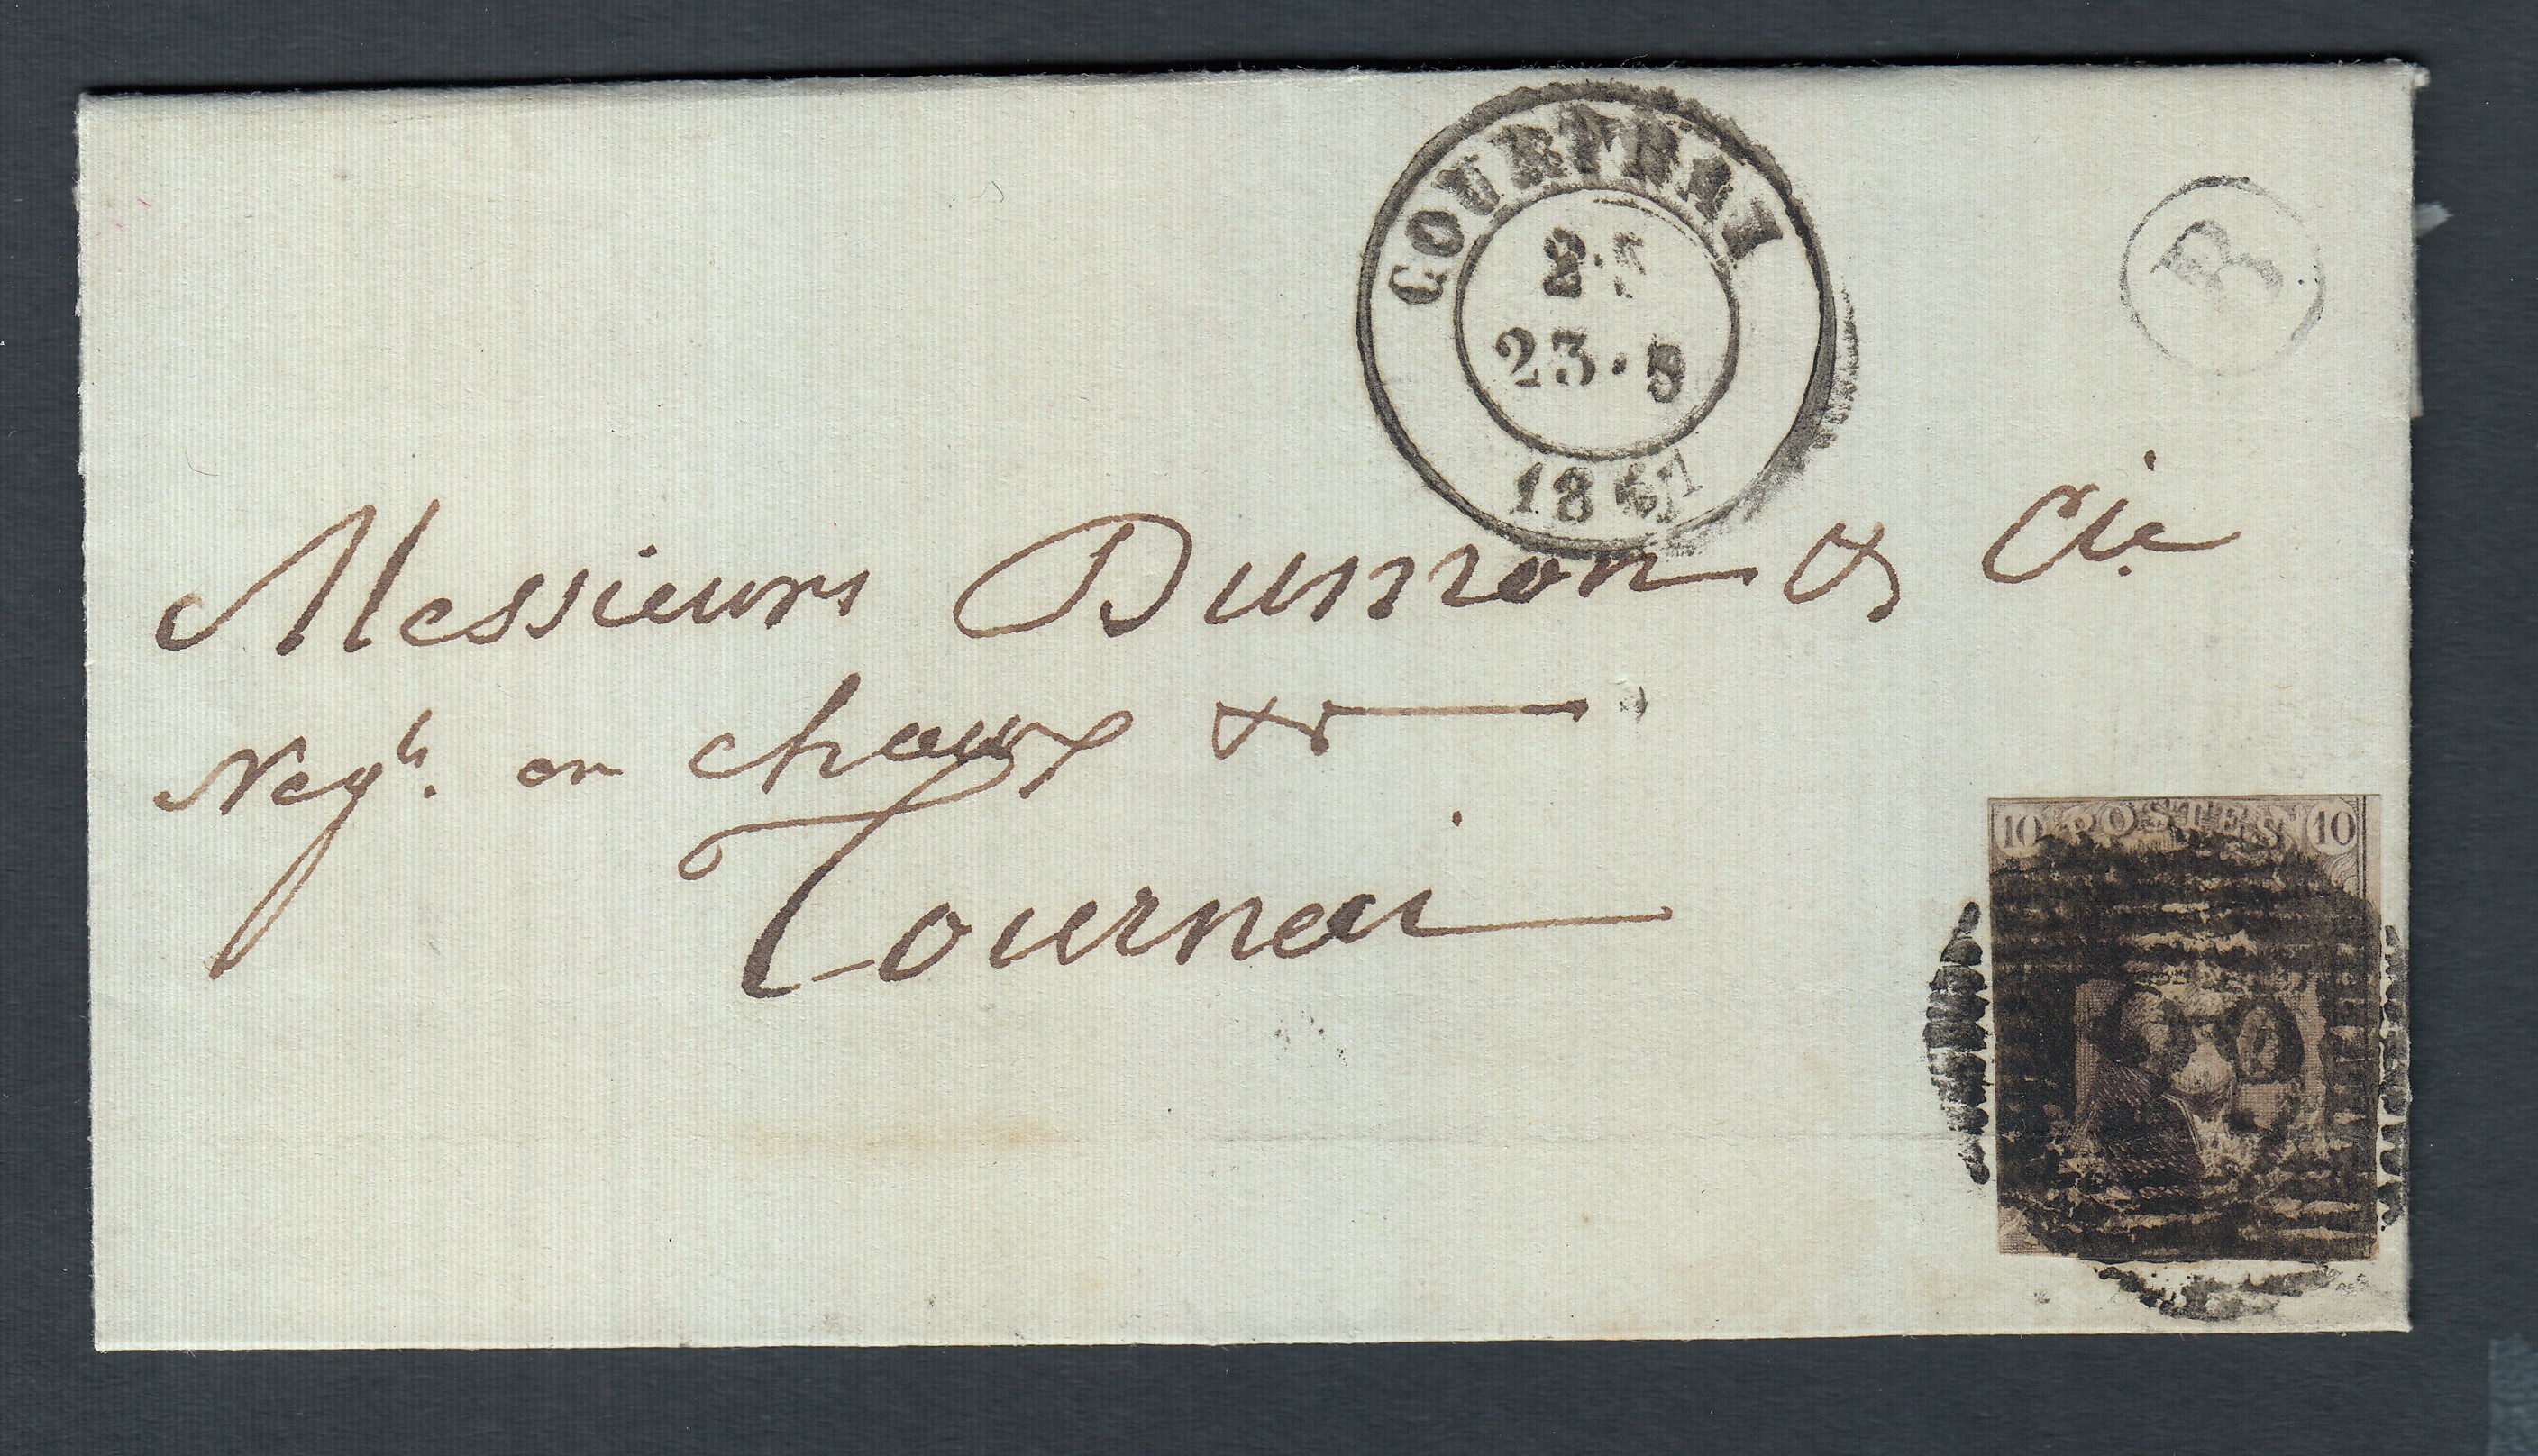 COURTRAI
23 · 8
18
R
Messieurs Dumon & Cie
Negts. en chaux &
Tournai
10 POSTES 10